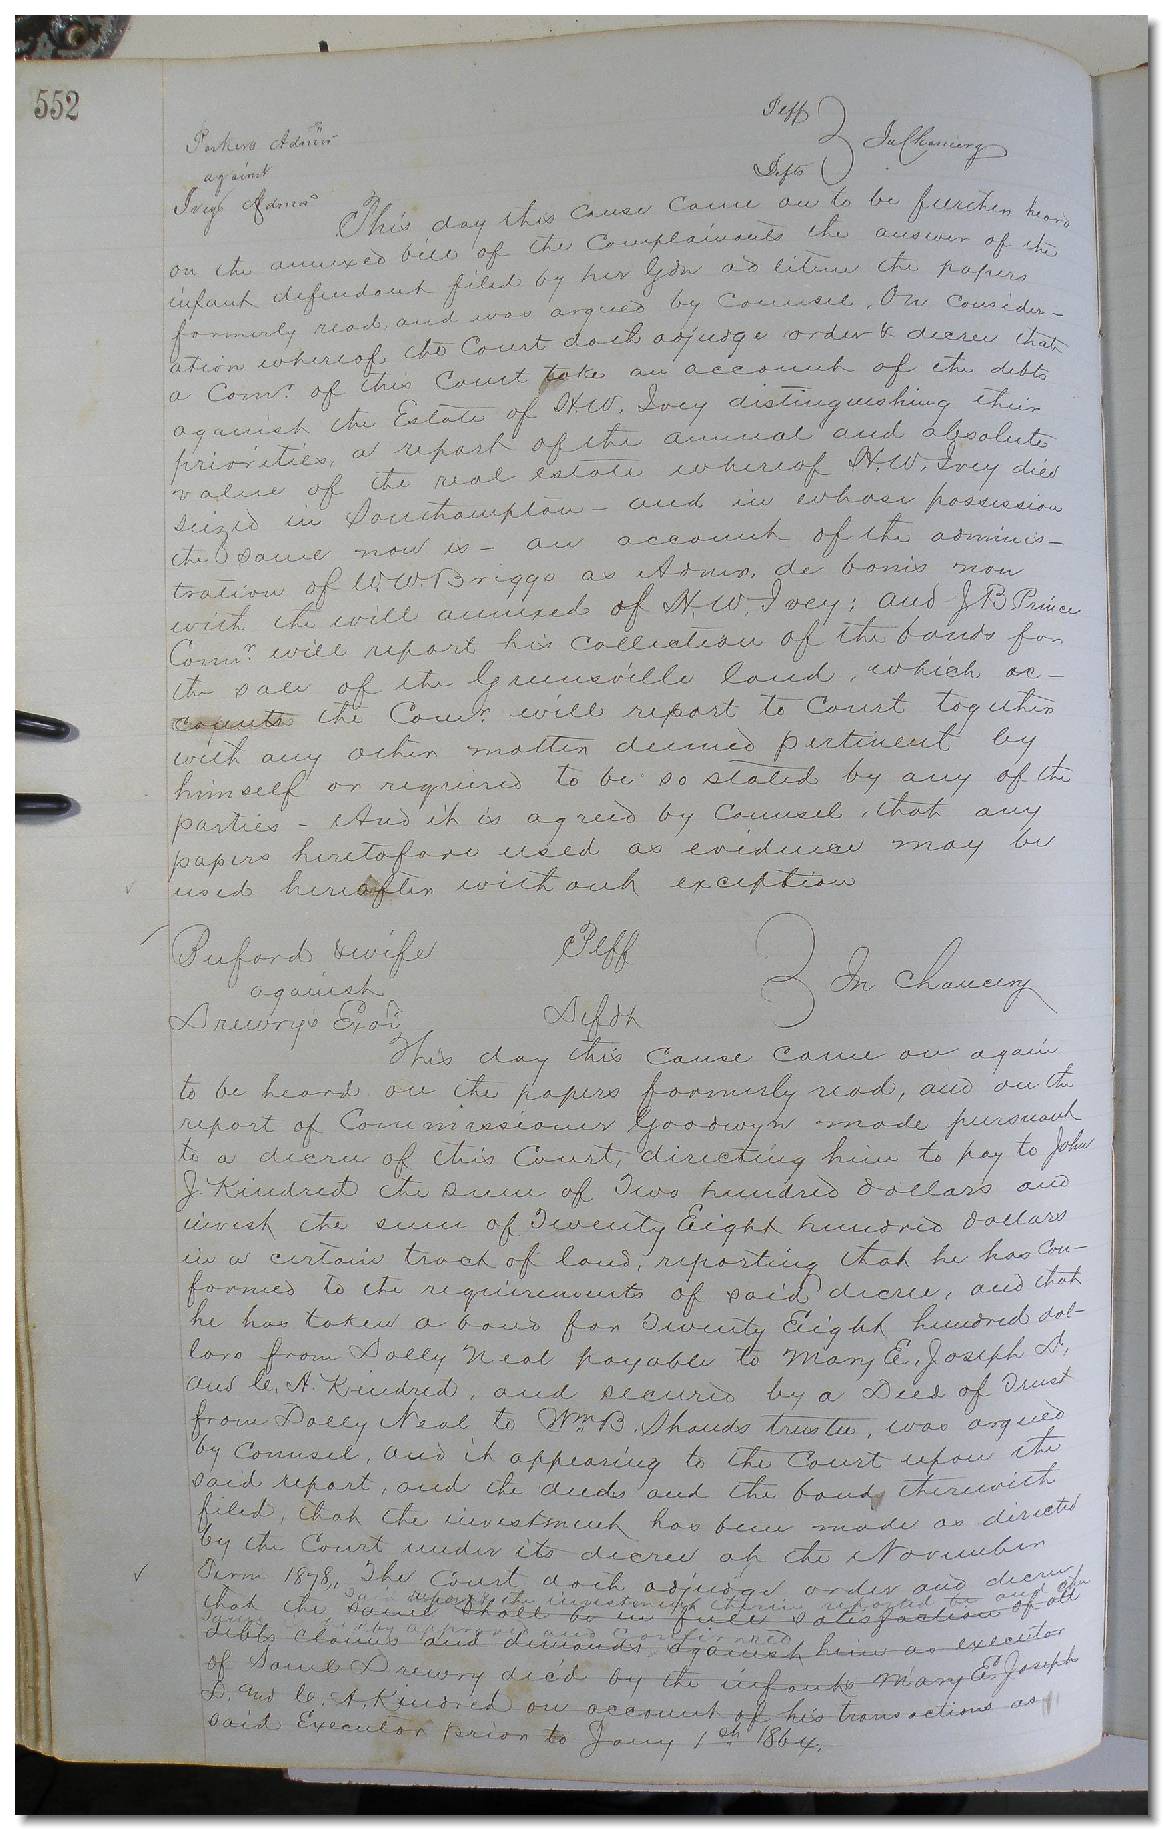 552
Parkers Admr Plff
against In Chancery
Iveys Admr Defts
This day this cause came on to be further heard
on the annexed bill of the Complainants the answer of the
infant defendant filed by her Gdn ad litem the papers
formerly read, and was argued by counsel. On consider-
ation whereof the Court doth adjudge order & decree that
a Comr. of this Court take an account of the debts
against the Estate of H.W. Ivey distinguishing their
priorities, a report of the annual and absolute
value of the real estate whereof H.W. Ivey died
seized in Southampton - and in whose possession
the same now is - an account of the adminis-
tration of W.W. Briggs as Admr. de bonis non
with the will annexed of H.W. Ivey; and J B Prince
Comr. will report his collection of the bonds for
the sale of the Greensville land, which ac-
counts the Comr. will report to Court together
with any other matter deemed pertinent by
himself or required to be so stated by any of the
parties - And it is agreed by Counsel, that any
papers heretofore used as evidence may be
used hereafter without exception
Buford & wife Plff
against In Chancery
Drewrys Exor Defdt
This day this cause came on again
to be heard on the papers formerly read, and on the
report of Commissioner Goodwyn made pursuant
to a decree of this Court, directing him to pay to John
J. Kindred the sum of Two hundred dollars and
invest the sum of Twenty Eight hundred dollars
in a certain tract of land, reporting that he has con-
formed to the requirements of said decree, and that
he has taken a bond for Twenty Eight hundred dol-
lars from Dolly Neal payable to Mary E, Joseph D,
and C. A. Kindred, and secured by a Deed of Trust
from Dolly Neal to Wm B. Shands trustee, was argued
by Counsel, and it appearing to the Court upon the
said report, and the deeds and the bond therewith
filed, that the investment has been made as directed
by the Court under its decree at the November
Term 1878, The Court doth adjudge order and decree
report the investment therein reported be and the
that the same shall be in full satisfaction of all
same hereby approved and confirmed
debts claims and demands against him as executor
of Saml Drewry dec'd by the infants Mary E. Joseph
D. and C. A. Kindred on account of his transactions as
said Executor prior to Jany 1st 1864.